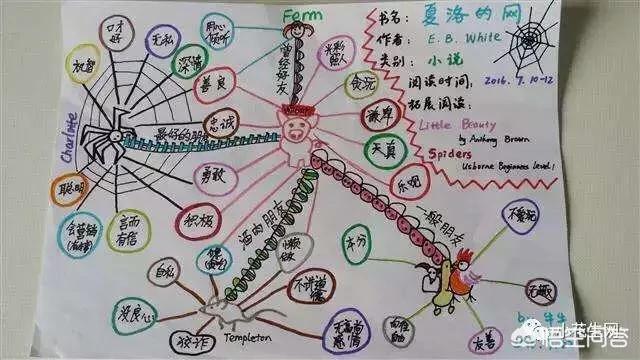 书名: 夏洛的网
作者: E. B. White
类别: 小说
阅读时间: 2016. 7. 10-12
拓展阅读:
Little Beauty
by Anthony Brown
Spiders
Usborne Beginners Level 1
Form
Charlotte
口才好
无私
深情
机智
聪明
言而有信
积极
勇敢
忠诚
善良
用心倾听
曾经好友
光彩照人
贪玩
谦卑
天真
乐观
最好的朋友
酒肉朋友
一般朋友
自私
没良心
狡诈
Templeton
懒做
不讲道德
无高尚感情
本分
不爱玩
无趣
友善
小花生网
悟空问答